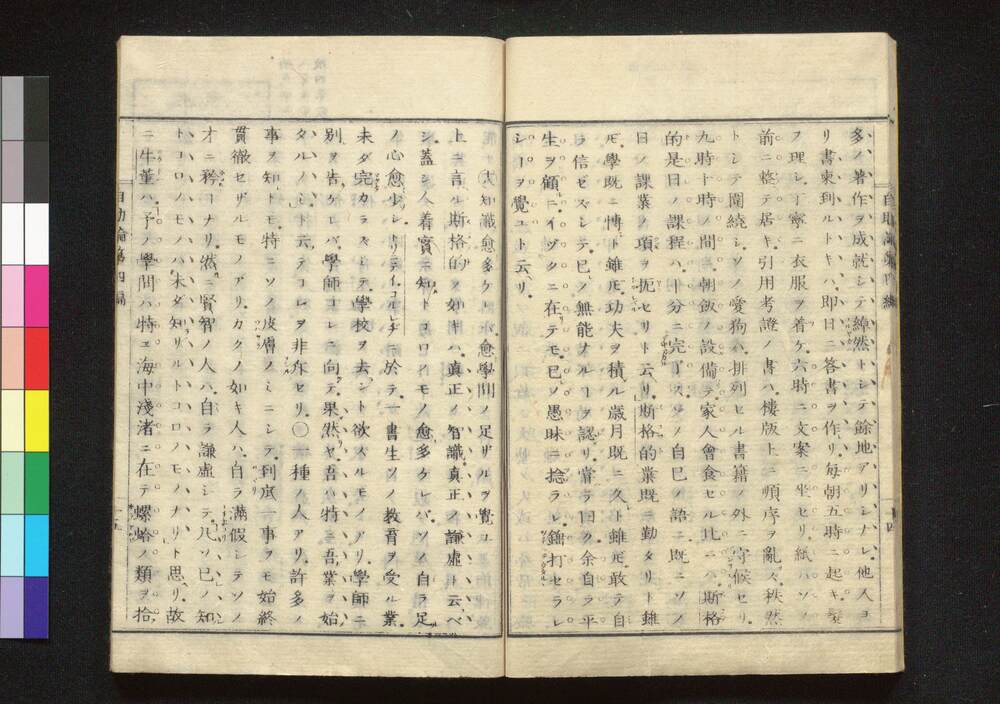 多ノ著作ヲ成就シテ綽然トシテ餘地アリシナレ他人ヨ
リ書柬到ルトキハ即日ニ答書ヲ作リ毎朝五時ニ起キ髪
フ理シ丁寧ニ衣服ヲ着ケ六時ニ文案ニ坐セリ紙ハソノ
前ニ整テ居キ引用考證ノ書ハ樓版上ニ順序ヲ亂ズ秩然
トシテ圍繞シソノ愛狗ハ排列セル書籍ノ外ニ守候セリ
九時十時ノ間朝飯ノ設備テ家人會食セル比ニハ斯格
的是日ノ課程ハ十分ニ完了スソノ自巳ノ語ニ既ニソノ
日ノ課業ノ項ヲ扼セリト云リ斯格的業既ニ勤タリト雖
𪜈學既ニ博ト雖𪜈功夫ヲ積ル歳月既ニ久ト雖𪜈敢テ自
ラ信ゼズシテ已ノ無能ナルヿヲ認リ嘗テ曰ク余自ラ平
生ヲ顧ニイヅクニ在テモ已ノ愚昧ニ捻ラレ錮打セラレ
シヿヲ覺ユト云リ
大知識愈多ケレバ愈學問ノ足ザルヲ覺ユ
上ニ言ル斯格的ノ如キハ真正ノ智識真正ノ謙虚ト云ベ
シ蓋シ人着實ニ知トコロノモノ愈多ケレバソノ自ラ足
ノ心愈少シトライ
ニ於テ一書生ソノ教育ヲ受ル業
未ダ完カラズシテ學校ヲ去ント欲スルモノアリ學師ニ
別ヲ告ケレバ學師コレニ向テ果然ヤ吾ハ特ニ吾業ヲ始
タルノミト云テコレヲ非斥セリ〇一種ノ人アリ許多ノ
事ヲ知トモ特ニソノ皮膚ノミニシテ到底一事ヲモ始終
貫徹セザルモノアリカクノ如キ人ハ自ラ滿假シテソノ
才ニ矜ーナリ然ニ賢智ノ人ハ自ラ謙虚シテ凡ソ已ノ知
トコロノモノハ未ダ知ザルトコロノモノナリト思リ故
ニ牛董ハ予ノ學問ハ特ニ海中淺渚ニ在テ螺蛤ノ類ヲ拾
自助論第四編
十五
自助論第四編
十四